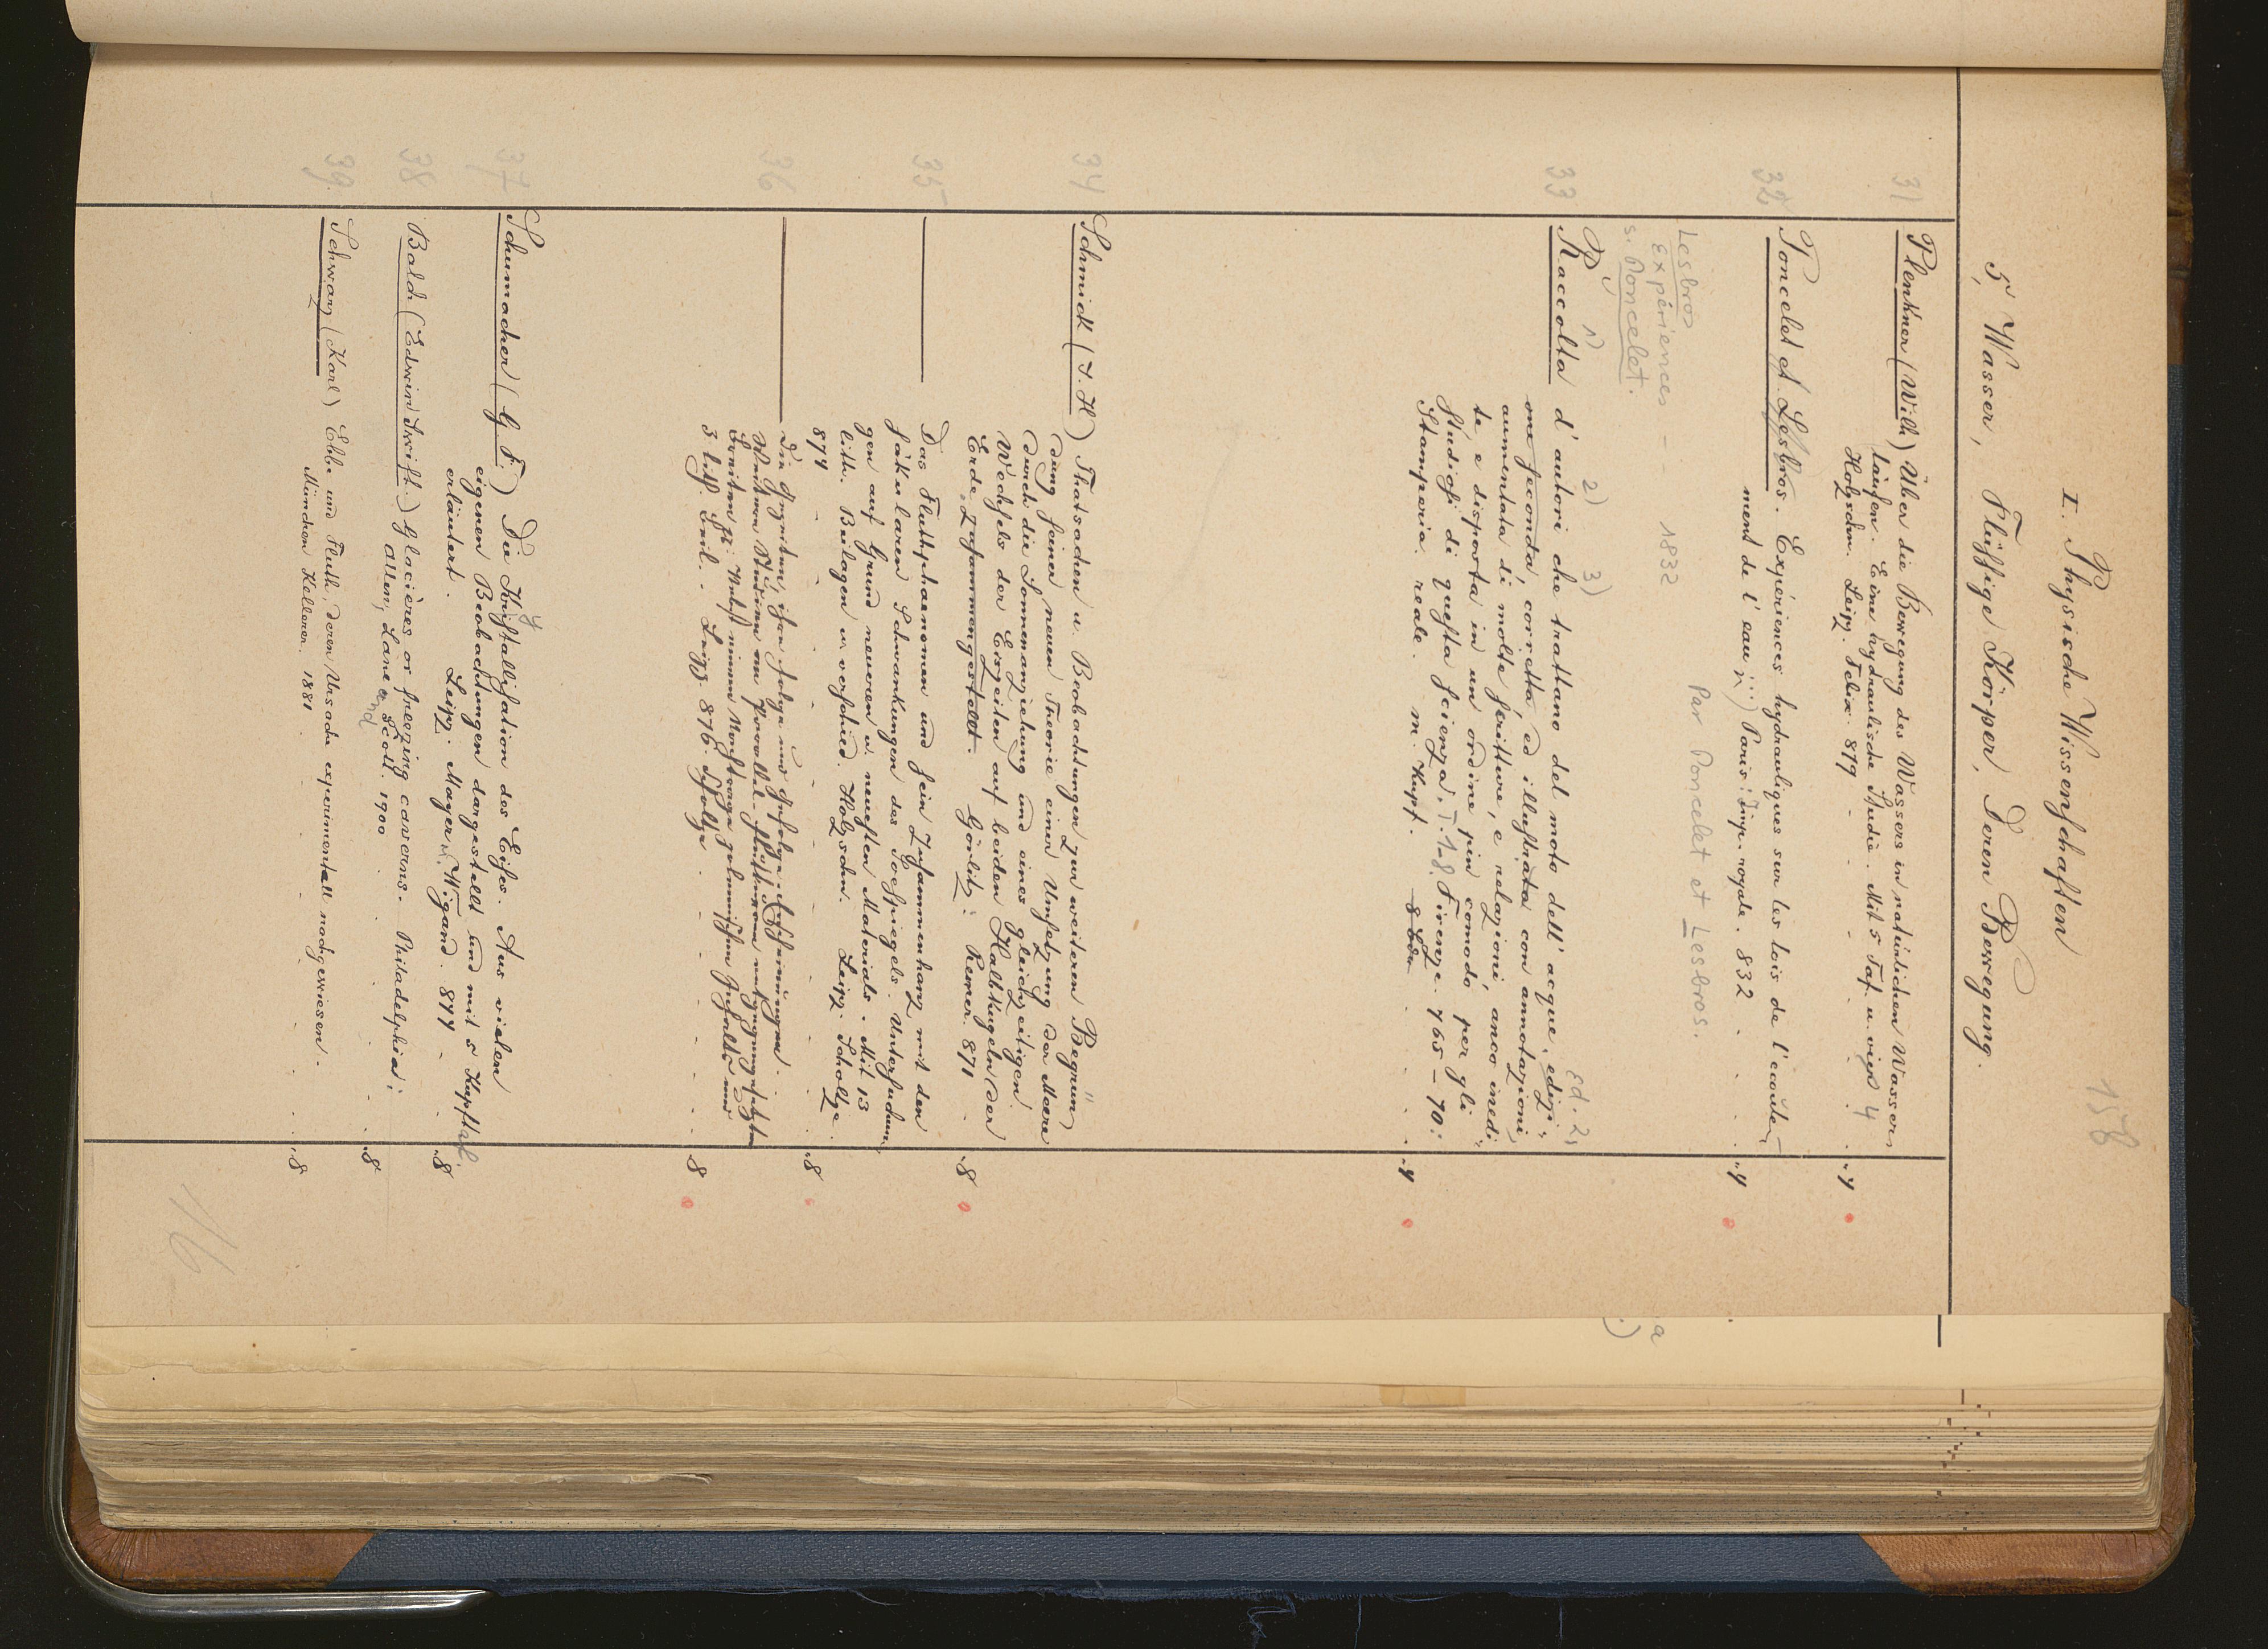 158
I. Physische Wissenschaften
5, Wasser, Flüssige Körper, Deren Bewegung.
31 Plenkner (Wilh) Über die Bewegung des Wassers in natürlichen Wasser,
läufen. Eine hydraulische Studie. Mit 5 Taf. u. vign 4
Holzschn. Leipz. Felix. 879 . . . . 4
32 Poncelet et Lesbros. Expériences hydrauliques sur les lois de l'écoule,
ment de l'eau Paris: Imp. royale. 832 . . . 4
Par Poncelet et Lesbros.
Lesbros
Expériences - - 1832
s. Poncelet.
1) 2) 3) Ed. 2,
33 Raccolta d'autori che trattano del moto dell'acque, edizi,
one seconda, corretta, ed illustrata con annotazioni,
aumentata di molte scritture, e relazioni, anco inedi,
te e disposta in un ordine piu comodo per gli
Studiosi di questa scienza. T. 1-8. Firenze. 765-70:
Stamperia reale. m. Kupf. . . . 4
34 Schmick (J. H) Thatsachen u. Beobachtungen zur weiteren Begrün,
dung seiner neuen Theorie einer Umsetzung der Meere
durch die Sonnenanziehung und eines gleichzeitigen
Wechsels der Eiszeiten auf beiden Halbkugeln der
Erde, zusammengestellt. Görlitz: Remer. 871 . 8
35 ——— Das Fluthphaenomen und sein Zusammenhang mit den
säkularen Schwankungen des Seespiegels. Untersuchun,
gen auf Grund neueren u. neuesten Materials. Mit 13
lith. Beilagen u. verschied. Holzschn. Leipz. Scholtze.
874 . . . . 8
36 ——— Die Gezeiten, ihre Folge und Gefolge-Erscheinungen.
3 lith. Taf. Leipz. 876. Scholtze . . . . 8
37 Schumacher (G. F.) Die Kristallisation des Eises. Aus vielen
y
eigenen Beobachtungen dargestellt und mit 5 Kupftaf.
erläutert. Leipz. Mayer u. Wigand. 844 . . 8
38 Balch (Edwin Swift.) Glacières or freezing caverns. Philadelphia:
Allen, Lane and Scott. 1900 . . . 8
39. Schwarz (Karl) Ebbe und Fluth, deren Ursache experimentell nachgewiesen.
München Kellerer. 1881 . . . . 8
116
a
.)